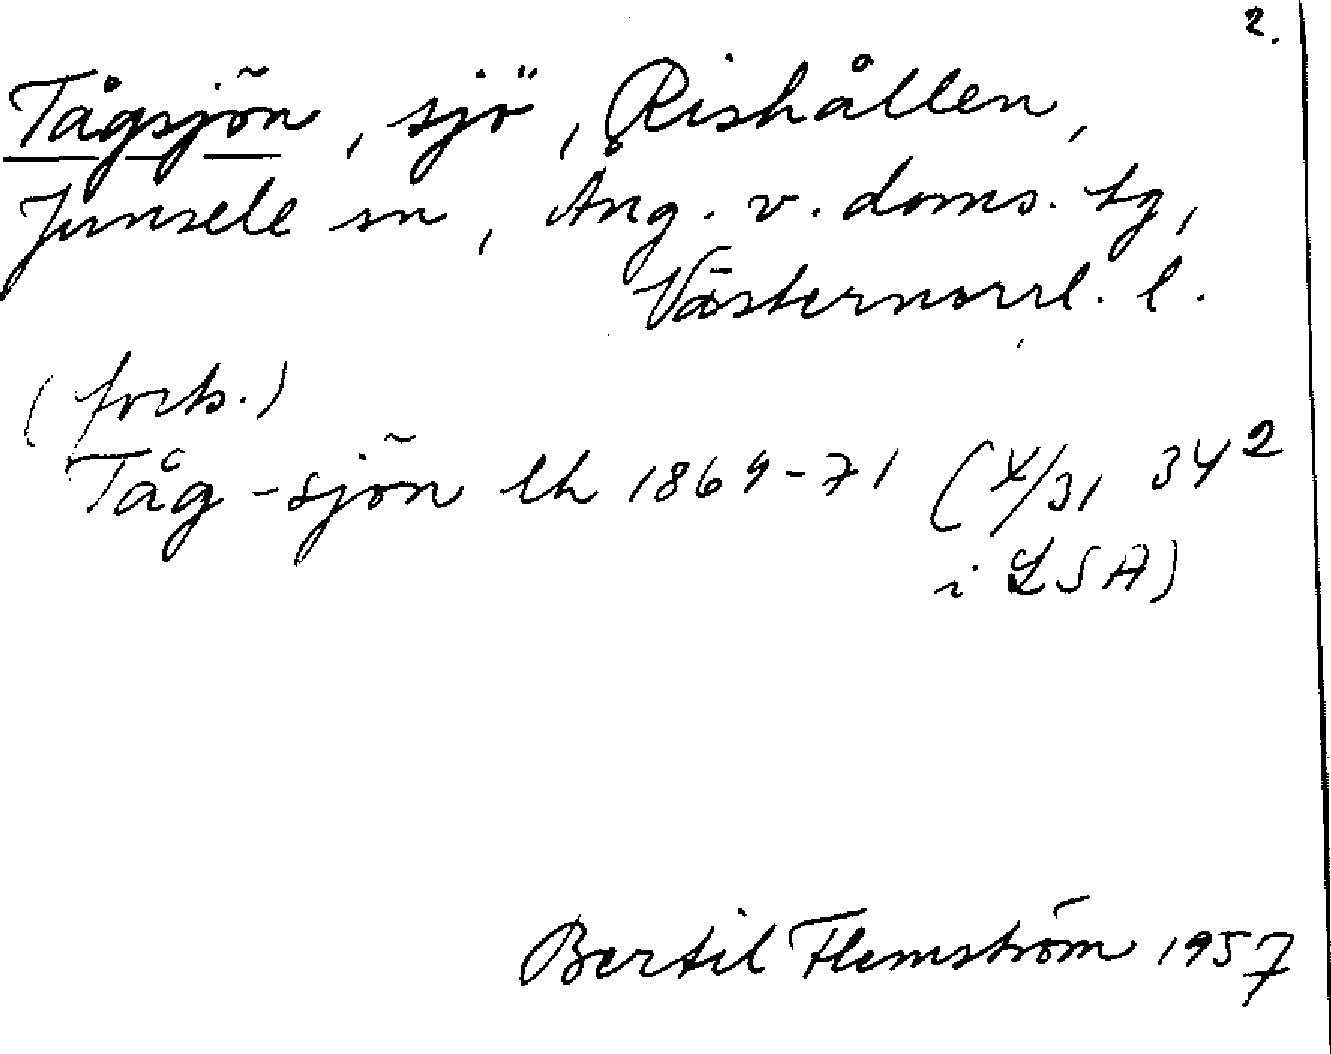 2.
Tågsjön, sjö, Rishållen,
Junsele sn, Ång. v. doms. tg,
Västernorrl. l.
(forts.)
Tåg-sjön lh 1869-71 (X/31 34²
i LSA)
Bertil Flemström 1957